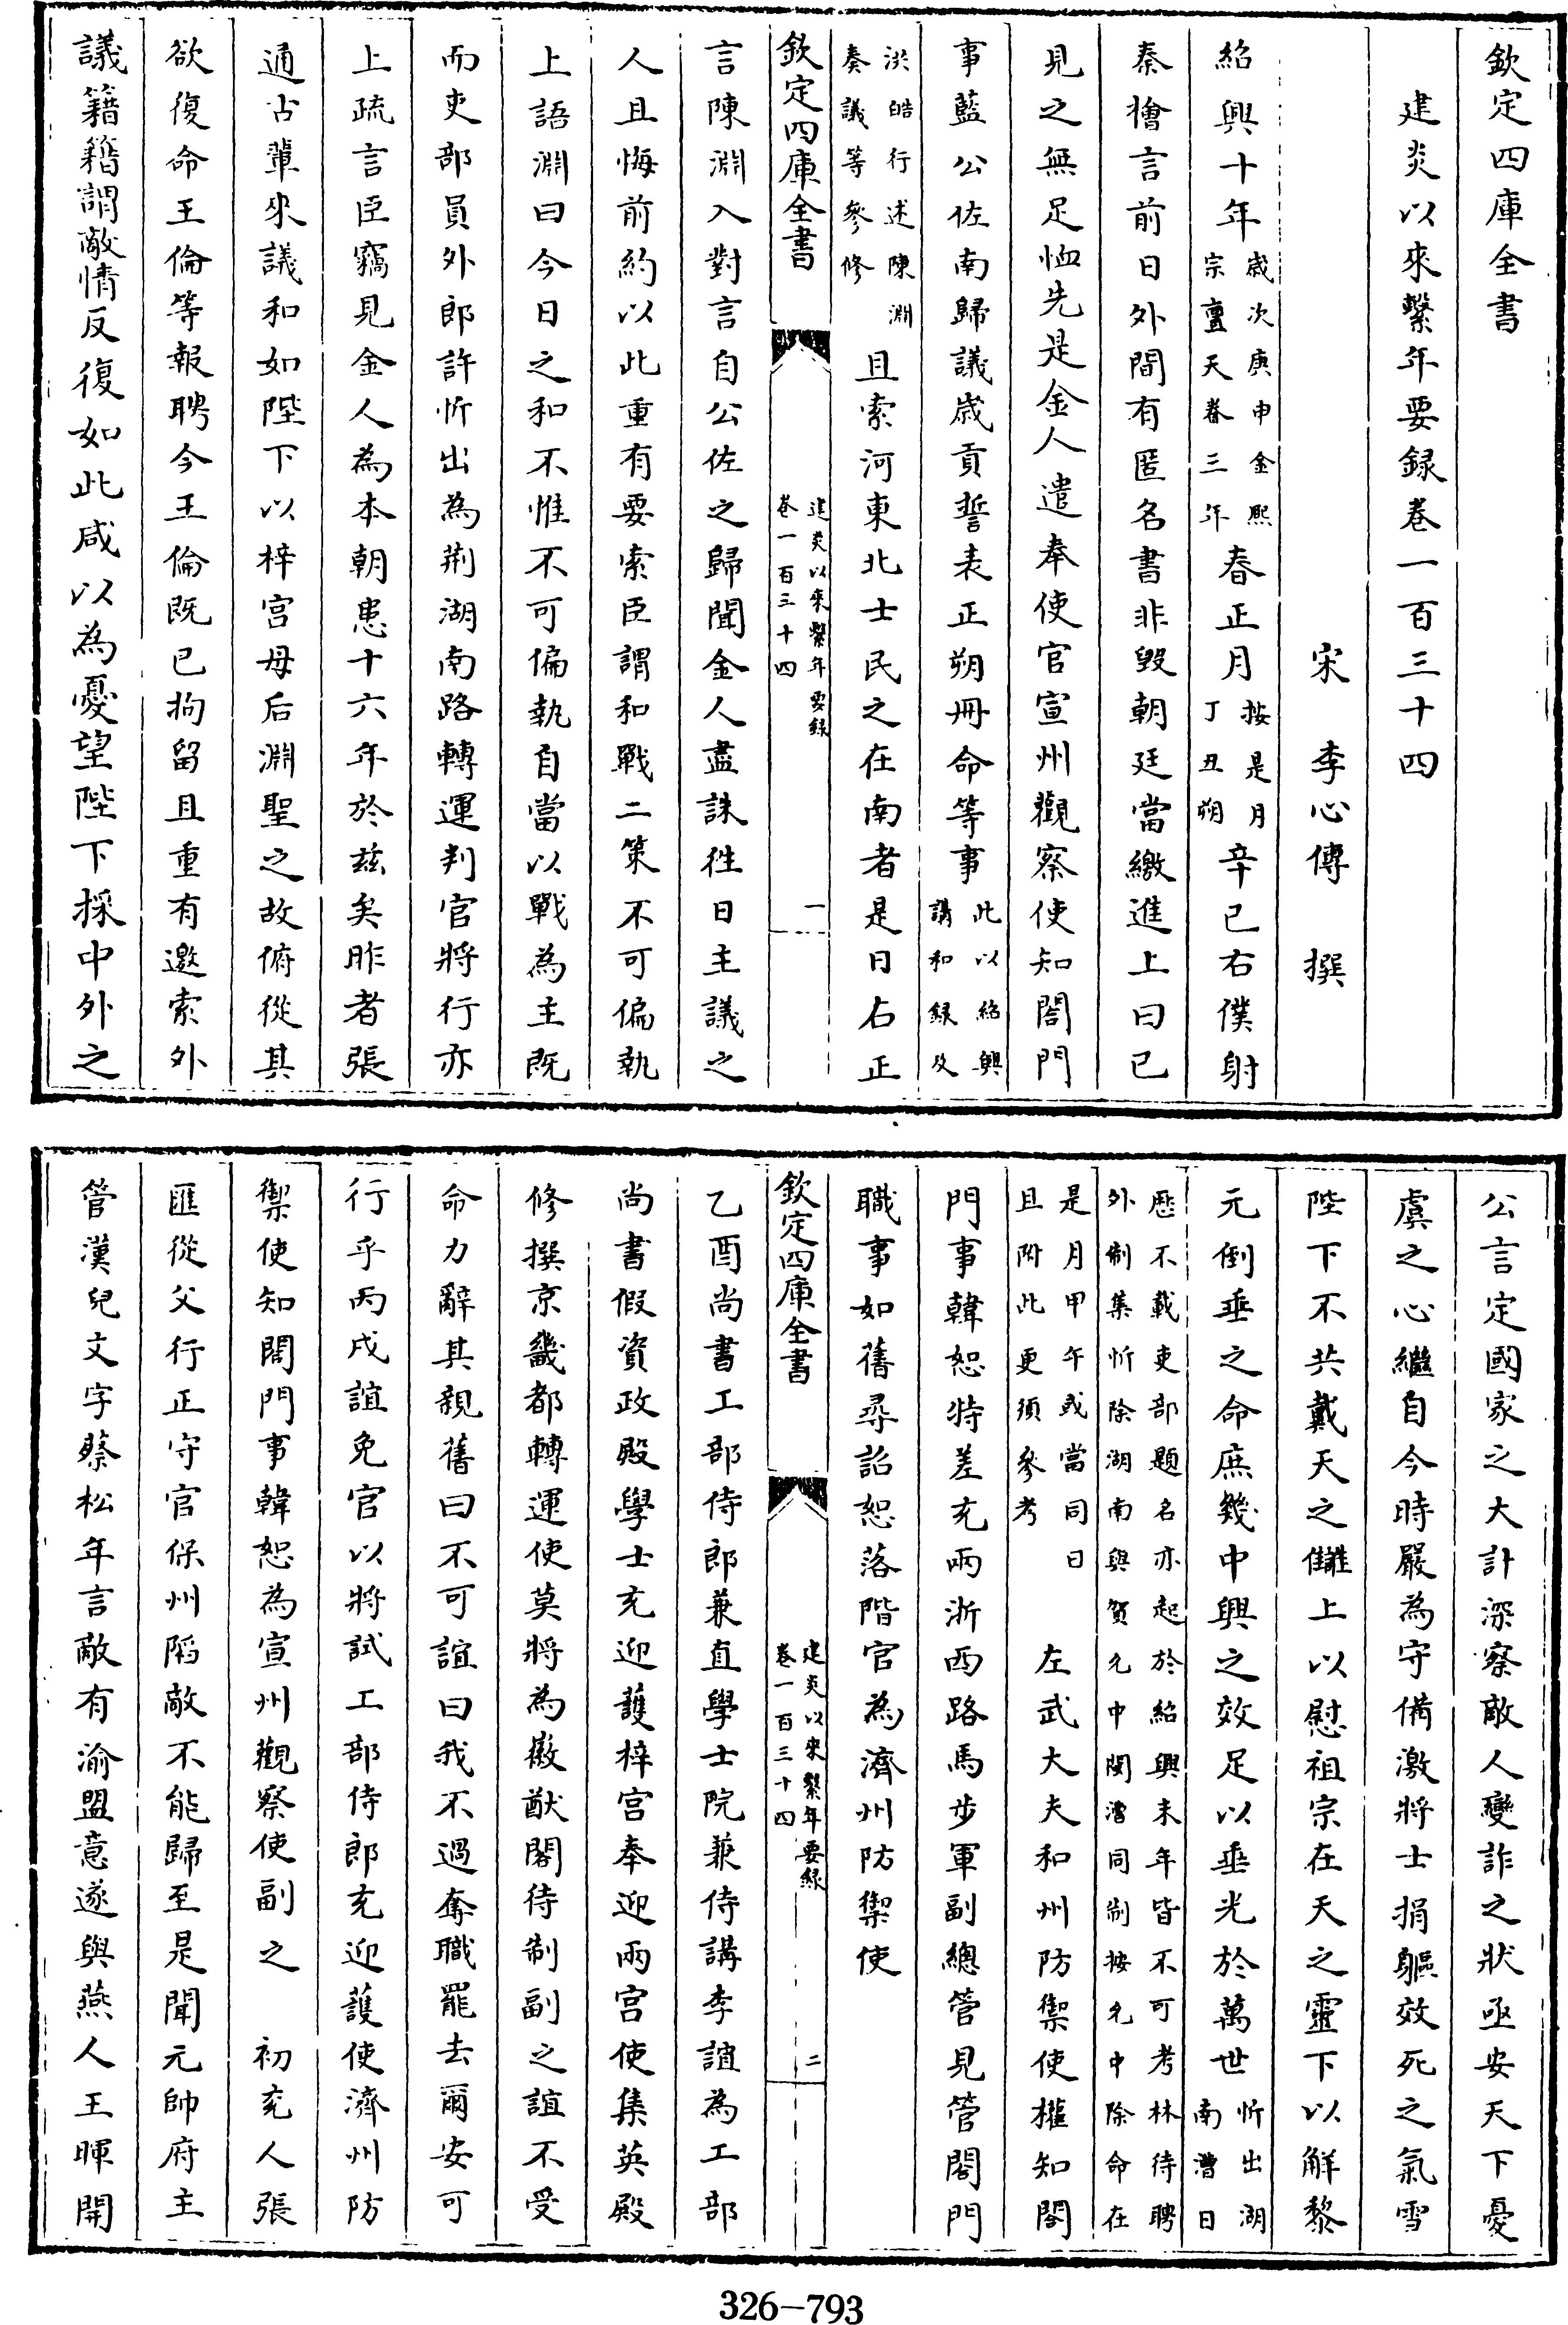 欽定四庫全書
建炎以來繫年要録卷一百三十四
宋 李心傳 撰
紹興十年歲次庚申金熙宗亶天眷三年春正月按是月丁丑朔辛巳右僕射
秦檜言前日外間有匿名書非毀朝廷當繳進上曰已
見之無足恤先是金人遣奉使官宣州觀察使知閤門
事藍公佐南歸議歲貢誓表正朔冊命等事此以紹興講和録及
洪皓行述陳淵奏議等參修且索河東北士民之在南者是日右正
欽定四庫全書 建炎以來繫年要録卷一百三十四 一
言陳淵入對言自公佐之歸聞金人盡誅徃日主議之
人且悔前約以此重有要索臣謂和戰二策不可偏執
上語淵曰今日之和不惟不可偏執自當以戰為主既
而吏部員外郎許忻出為荆湖南路轉運判官將行亦
上疏言臣竊見金人為本朝患十六年於兹矣昨者張
通古輩來議和如陛下以梓宫母后淵聖之故俯從其
欲復命王倫等報聘今王倫既已拘留且重有邀索外
議籍籍謂敵情反復如此咸以為憂望陛下採中外之
公言定國家之大計深察敵人變詐之狀亟安天下憂
虞之心繼自今時嚴為守備激將士捐軀效死之氣雪
陛下不共戴天之讎上以慰祖宗在天之靈下以解黎
元倒垂之命庶幾中興之效足以垂光於萬世忻出湖南漕日
厯不載吏部題名亦起於紹興末年皆不可考林待聘外制集忻除湖南與賀允中閩漕同制按允中除命在
是月甲午或當同日且附此更須參考 左武大夫和州防禦使權知閤
門事韓恕特差充兩浙西路馬步軍副總管見管閤門
職事如舊尋詔恕落階官為濟州防禦使
欽定四庫全書 建炎以來繫年要録卷一百三十四 二
乙酉尚書工部侍郎兼直學士院兼侍講李誼為工部
尚書假資政殿學士充迎護梓宫奉迎兩宫使集英殿
修撰京畿都轉運使莫將為徽猷閣待制副之誼不受
命力辭其親舊曰不可誼曰我不過奪職罷去爾安可
行乎丙戌誼免官以將試工部侍郎充迎護使濟州防
禦使知閤門事韓恕為宣州觀察使副之 初兖人張
匯從父行正守官保州陷敵不能歸至是聞元帥府主
管漢兒文字蔡松年言敵有渝盟意遂與燕人王暉開
326-793